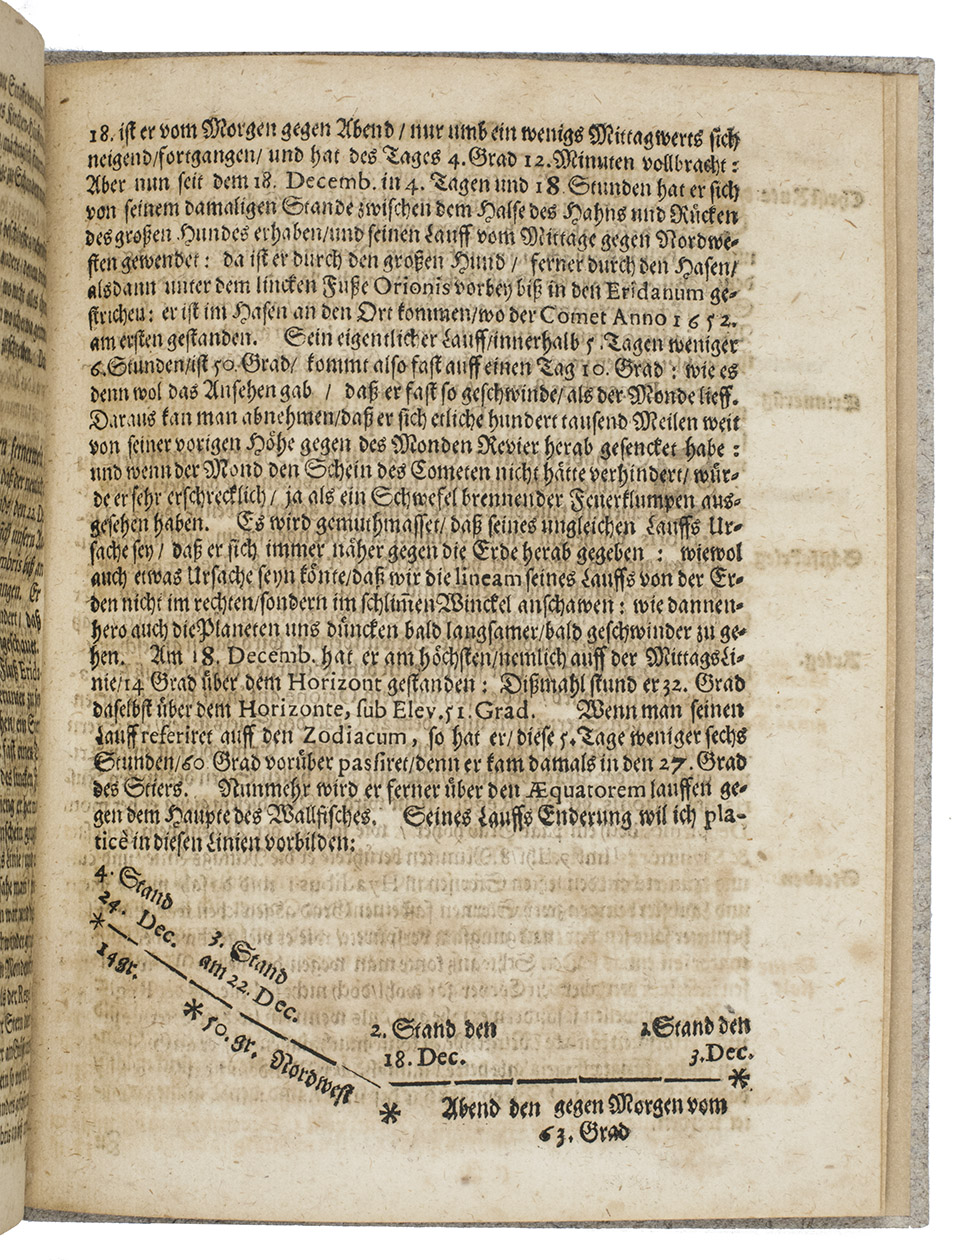 18. ist er vom Morgen gegen Abend / nur umb ein wenigs Mittagwerts sich
neigend/fortgangen/ und hat des Tages 4. Grad 12. Minuten vollbracht:
Aber nun seit dem 18. Decemb. in 4. Tagen und 18 Stunden hat er sich
von seinem damaligen Stande zwischen dem Halse des Hahns und Rücken
des großen Hundes erhaben/und seinen Lauff vom Mittage gegen Nordwe-
sten gewendet: da ist er durch den großen Hund / ferner durch den Hasen/
alsdann unter dem lincken Fuße Orionis vorbey biß in den Eridanum ge-
strichen: er ist im Hasen an den Ort kommen/wo der Comet Anno 1652.
am ersten gestanden. Sein eigentlicher Lauff/innerhalb 5. Tagen weniger
6. Stunden/ist 50. Grad/ kommt also fast auff einen Tag 10. Grad: wie es
denn wol das Ansehen gab / daß er fast so geschwinde/als der Monde lieff.
Daraus kan man abnehmen/daß er sich etliche hundert tausend Meilen weit
von seiner vorigen Höhe gegen des Monden Revier herab gesencket habe:
und wenn der Mond den Schein des Cometen nicht hätte verhindert/ wür-
de er sehr erschrecklich/ ja als ein Schwefel brennender Feuerklumpen aus-
gesehen haben. Es wird gemuthmasset/ daß seines ungleichen Lauffs Ur-
sache sey/ daß er sich immer näher gegen die Erde herab gegeben: wiewol
auch etwas Ursache seyn könte/daß wir die lineam seines Lauffs von der Er-
den nicht im rechten/sondern im schlim̃en Winckel anschawen: wie dannen-
hero auch die Planeten uns düncken bald langsamer/bald geschwinder zu ge-
hen. Am 18. Decemb. hat er am höchsten/nemlich auff der MittagsLi-
nie/14 Grad über dem Horizont gestanden: Dißmahl stund er 32. Grad
daselbst über dem Horizonte, sub Elev. 51. Grad. Wenn man seinen
Lauff referiret auff den Zodiacum, so hat er/ diese 5. Tage weniger sechs
Stunden/60 Grad vorüber passiret/denn er kam damals in den 27. Grad
des Stiers. Nunmehr wird er ferner über den Æquatorem lauffen ge-
gen dem Haupte des Wallfisches. Seines Lauffs Enderung wil ich pla-
ticè in diesen Linien vorbilden:
4. Stand
24. Dec.
14gr.
3. Stand
am 22. Dec.
50. gr. Nordwest
2. Stand den
18. Dec.
1. Stand den
3. Dec.
Abend den gegen Morgen vom
63. Grad